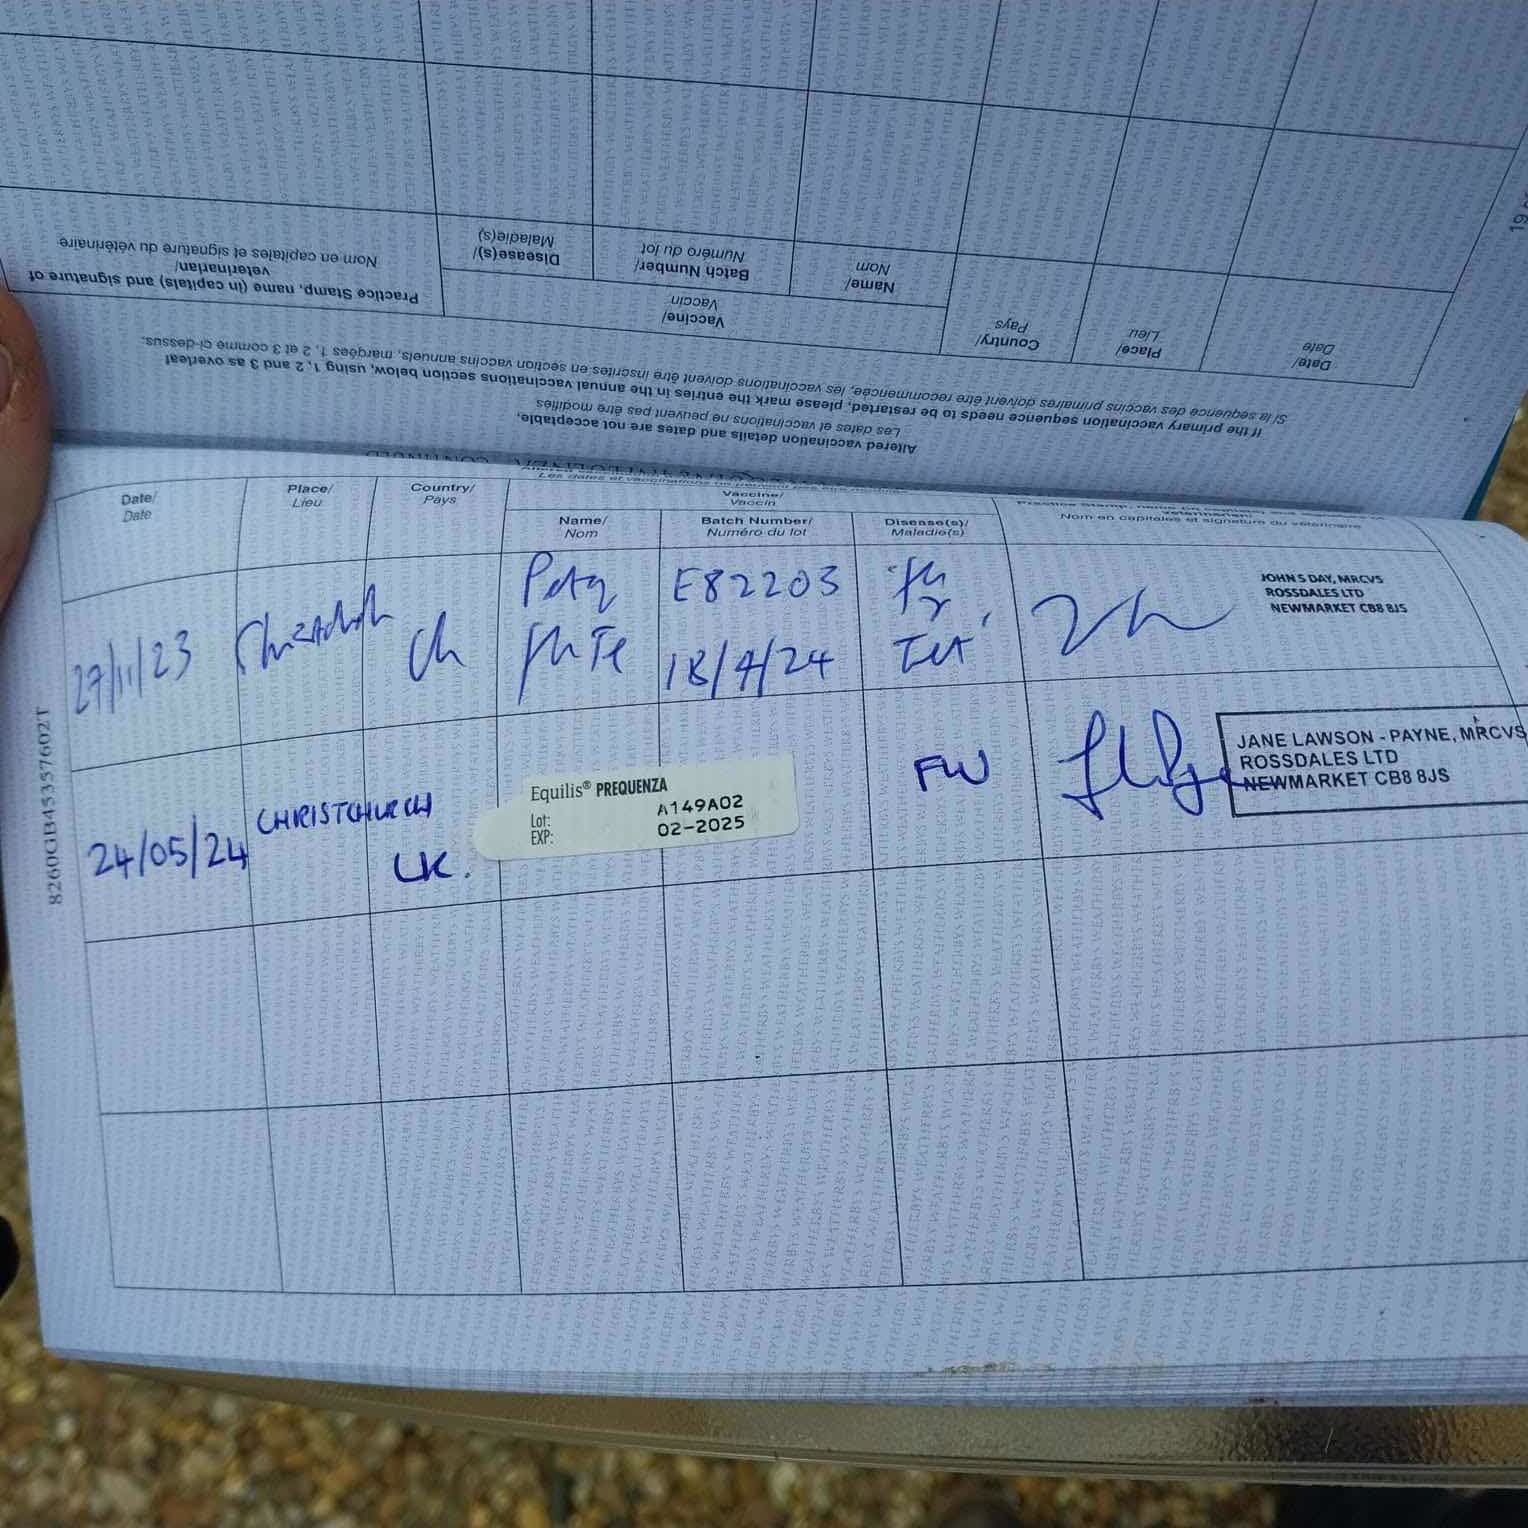 Practice Stamp, name (in capitals) and signature of
veterinarian/
Nom en capitales et signature du vétérinaire
Disease(s)/
Maladie(s)
Batch Number/
Numéro du lot
Name/
Nom
Vaccine/
Vaccin
Country/
Pays
Place/
Lieu
Date/
Date
If the primary vaccination sequence needs to be restarted, please mark the entries in the annual vaccinations section below, using 1, 2 and 3 as overleaf
Si la séquence des vaccins primaires doivent être recommencée, les vaccinations doivent être inscrites en section vaccins annuels, marqées 1, 2 et 3 comme ci-dessus.
Altered vaccination details and dates are not acceptable,
Les dates et vaccinations ne peuvent pas être modifiés
Les dates et vaccinations ne peuvent pas être modifiés
Date/
Date
Place/
Lieu
Country/
Pays
Vaccine/
Vaccin
Name/
Nom
Batch Number/
Numéro du lot
Disease(s)/
Maladie(s)
Nom en capitales et signature du vétérinaire
27/11/23
E82203
18/4/24
Tet
JOHN S DAY, MRCVS
ROSSDALES LTD
NEWMARKET CB8 8JS
24/05/24
CHRISTCHURCH
UK.
Equilis® PREQUENZA
Lot: A149A02
EXP: 02-2025
JANE LAWSON - PAYNE, MRCVS
ROSSDALES LTD
NEWMARKET CB8 8JS
8260GB45357602T